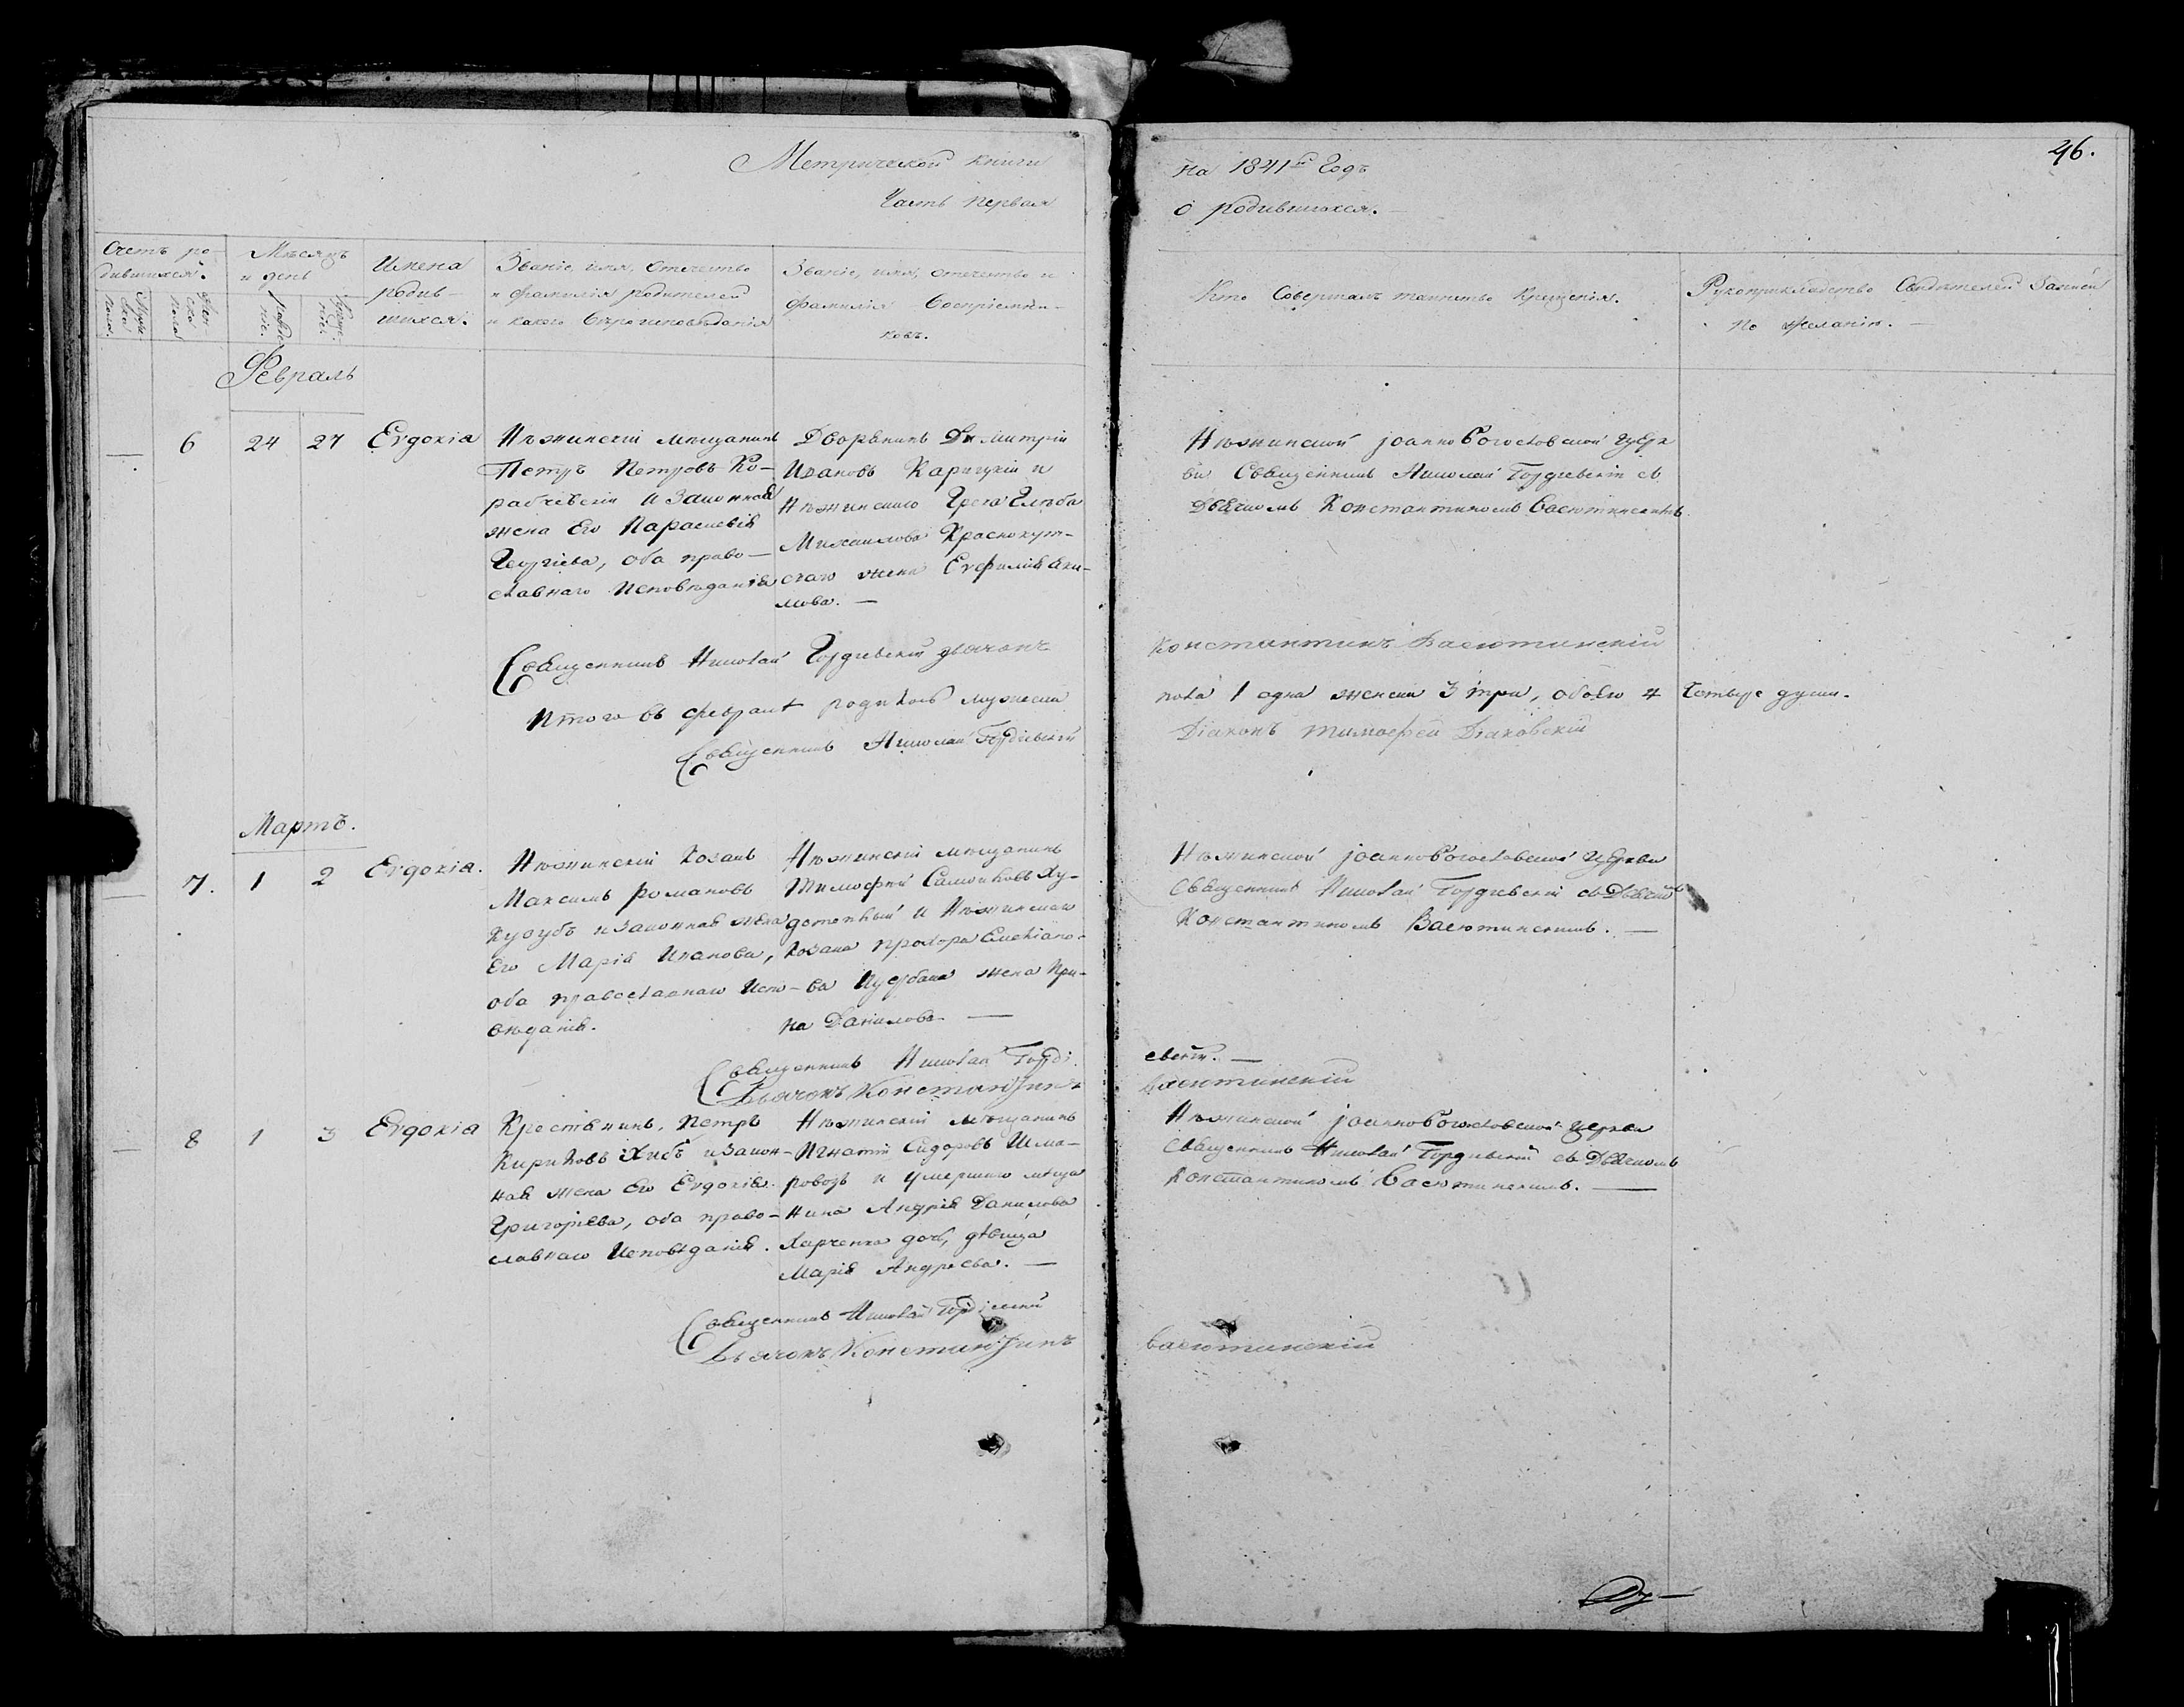 Метрической книги
Часть первая
на 1841й Годъ
о родившихся.
46.
Счетъ ро-
дившихся.
Мѣсяцъ
и день
Имена
родив-
шихся.
Званіе, имя, отечество
и фамилія родителей
и какого вѣроисповѣданія
Званіе, имя, отечество и
фамилія воспріемни-
ковъ.
Кто совершалъ таинство крещенія.
Рукоприкладство свидѣтелей записи
по желанію. —
Муже-
ска
пола.
Жен
ска
пола
Рожде
ніе.
Креще-
ніе.
Февраль
— 6 24 27 Евдокіа
Нѣжинскій мѣщанинъ
Петръ Петровъ Ко-
рабчевскій и законная
жена его Параскевія
Георгіева, оба право-
славнаго исповѣданія
Дворянинъ Димитрій
Ивановъ Карицкій и
Нѣжинскаго Грека Глѣба
Михаилова Краснокут-
скаго жена Евфимія Яки-
мова. —
Нѣжинской Іоанно Богословской церк
ви Священникъ Николай Гордіевскій съ
Дьячкомъ Константиномъ Васютинскимъ
Священникъ Николай Гордіевскій дьячокъ
Константинъ Васютинскій
Итого въ февралѣ родилось мужеска
пола 1 одна женска 3 три, обоего 4 четыре души.
Священникъ Николай Гордіевскій
Діаконъ Тимофей Діаковскій
Мартъ.
— 7. 1 2 Евдокіа.
Нѣжинскій козакъ
Максимъ Романовъ
Кугубъ и законная жена
его Марія Иванова,
оба православнаго испо-
вѣданія.
Нѣжинскій мѣщанинъ
Тимофей Самойловъ Ху-
дотеплый и Нѣжинскаго
козака Прохора Емельяно-
ва Цурбана жена Ири-
на Данилова —
Нѣжинской Іоанно Богословской церкви
Священникъ Николай Гордіевскій съ Дьячкомъ
Константиномъ Васютинскимъ. —
Священникъ Николай Горді
евскій. —
Дьячокъ Константинъ
Васютинскій
— 8 1 3 Евдокіа
Крестьянинъ, Петръ
Кириловъ Хибъ и закон-
ная жена его Евдокія
Григорьева, оба право-
славнаго исповѣданія.
Нѣжинскій мѣщанинъ
Игнатій Сидоровъ Шма-
ровозъ и умершаго мѣща
нина Андрея Данилова
Харченка дочь, дѣвица
Марія Андреева. —
Нѣжинской Іоанно Богословской церкви
Священникъ Николай Гордіевскій съ Дьячкомъ
Константиномъ Васютинскимъ. —
Священникъ Николай Гордіевскій
Дьячокъ Константинъ
Васютинскій